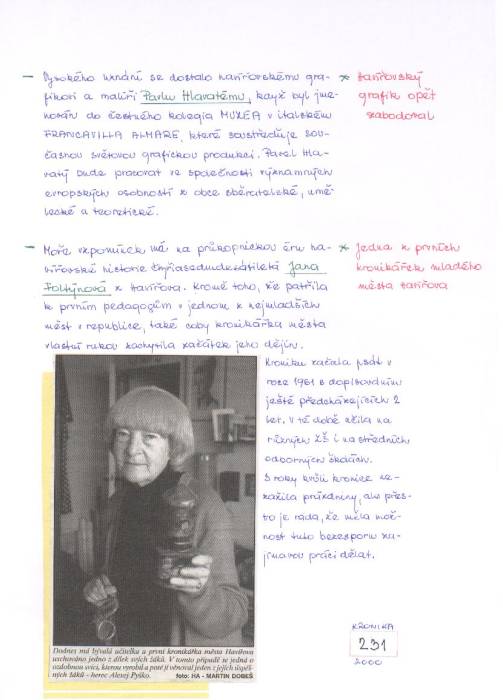 - Vysokého uznání se dostalo havířovskému gra-
fikovi a malíři Pavlu Hlavatému, když byl jme-
nován do čestného kolegia MUZEA v italském
FRANCAVILLA ALMARE, které soustřeďuje sou-
časnou světovou grafickou produkci. Pavel Hla-
vatý bude pracovat ve společnosti významných
evropských osobností z obce sběratelské, umě-
lecké a teoretické.
* havířovský
grafik opět
zabodoval
- Moře vzpomínek má na průkopnickou éru ha-
vířovské historie čtyřiasedmdesátiletá Jana
Foltýnová z Havířova. Kromě toho, že patřila
k prvním pedagogům v jednom z nejmladších
měst v republice, také coby kronikářka města
vlastní rukou zachytila začátek jeho dějin.
* jedna z prvních
kronikářek mladého
města Havířova
Kroniku začala psát v
roce 1961 s dopisováním
ještě předcházejících 2
let. V té době učila na
různých ZŠ i na středních
odborných školách.
S roky kvůli kronice ne-
zažila prázdniny, ale přes-
to je ráda, že měla mož-
nost tuto bezesporu za-
jímavou práci dělat.
Dodnes má bývalá učitelka a první kronikářka města Havířova
uschováno jedno z dílek svých žáků. V tomto případě se jedná o
ozdobnou svíci, kterou vyrobil a poté jí věnoval jeden z jejích úspěš-
ných žáků - herec Alexej Pyško. foto: HA - MARTIN DOBEŠ
KRONIKA
231
2000